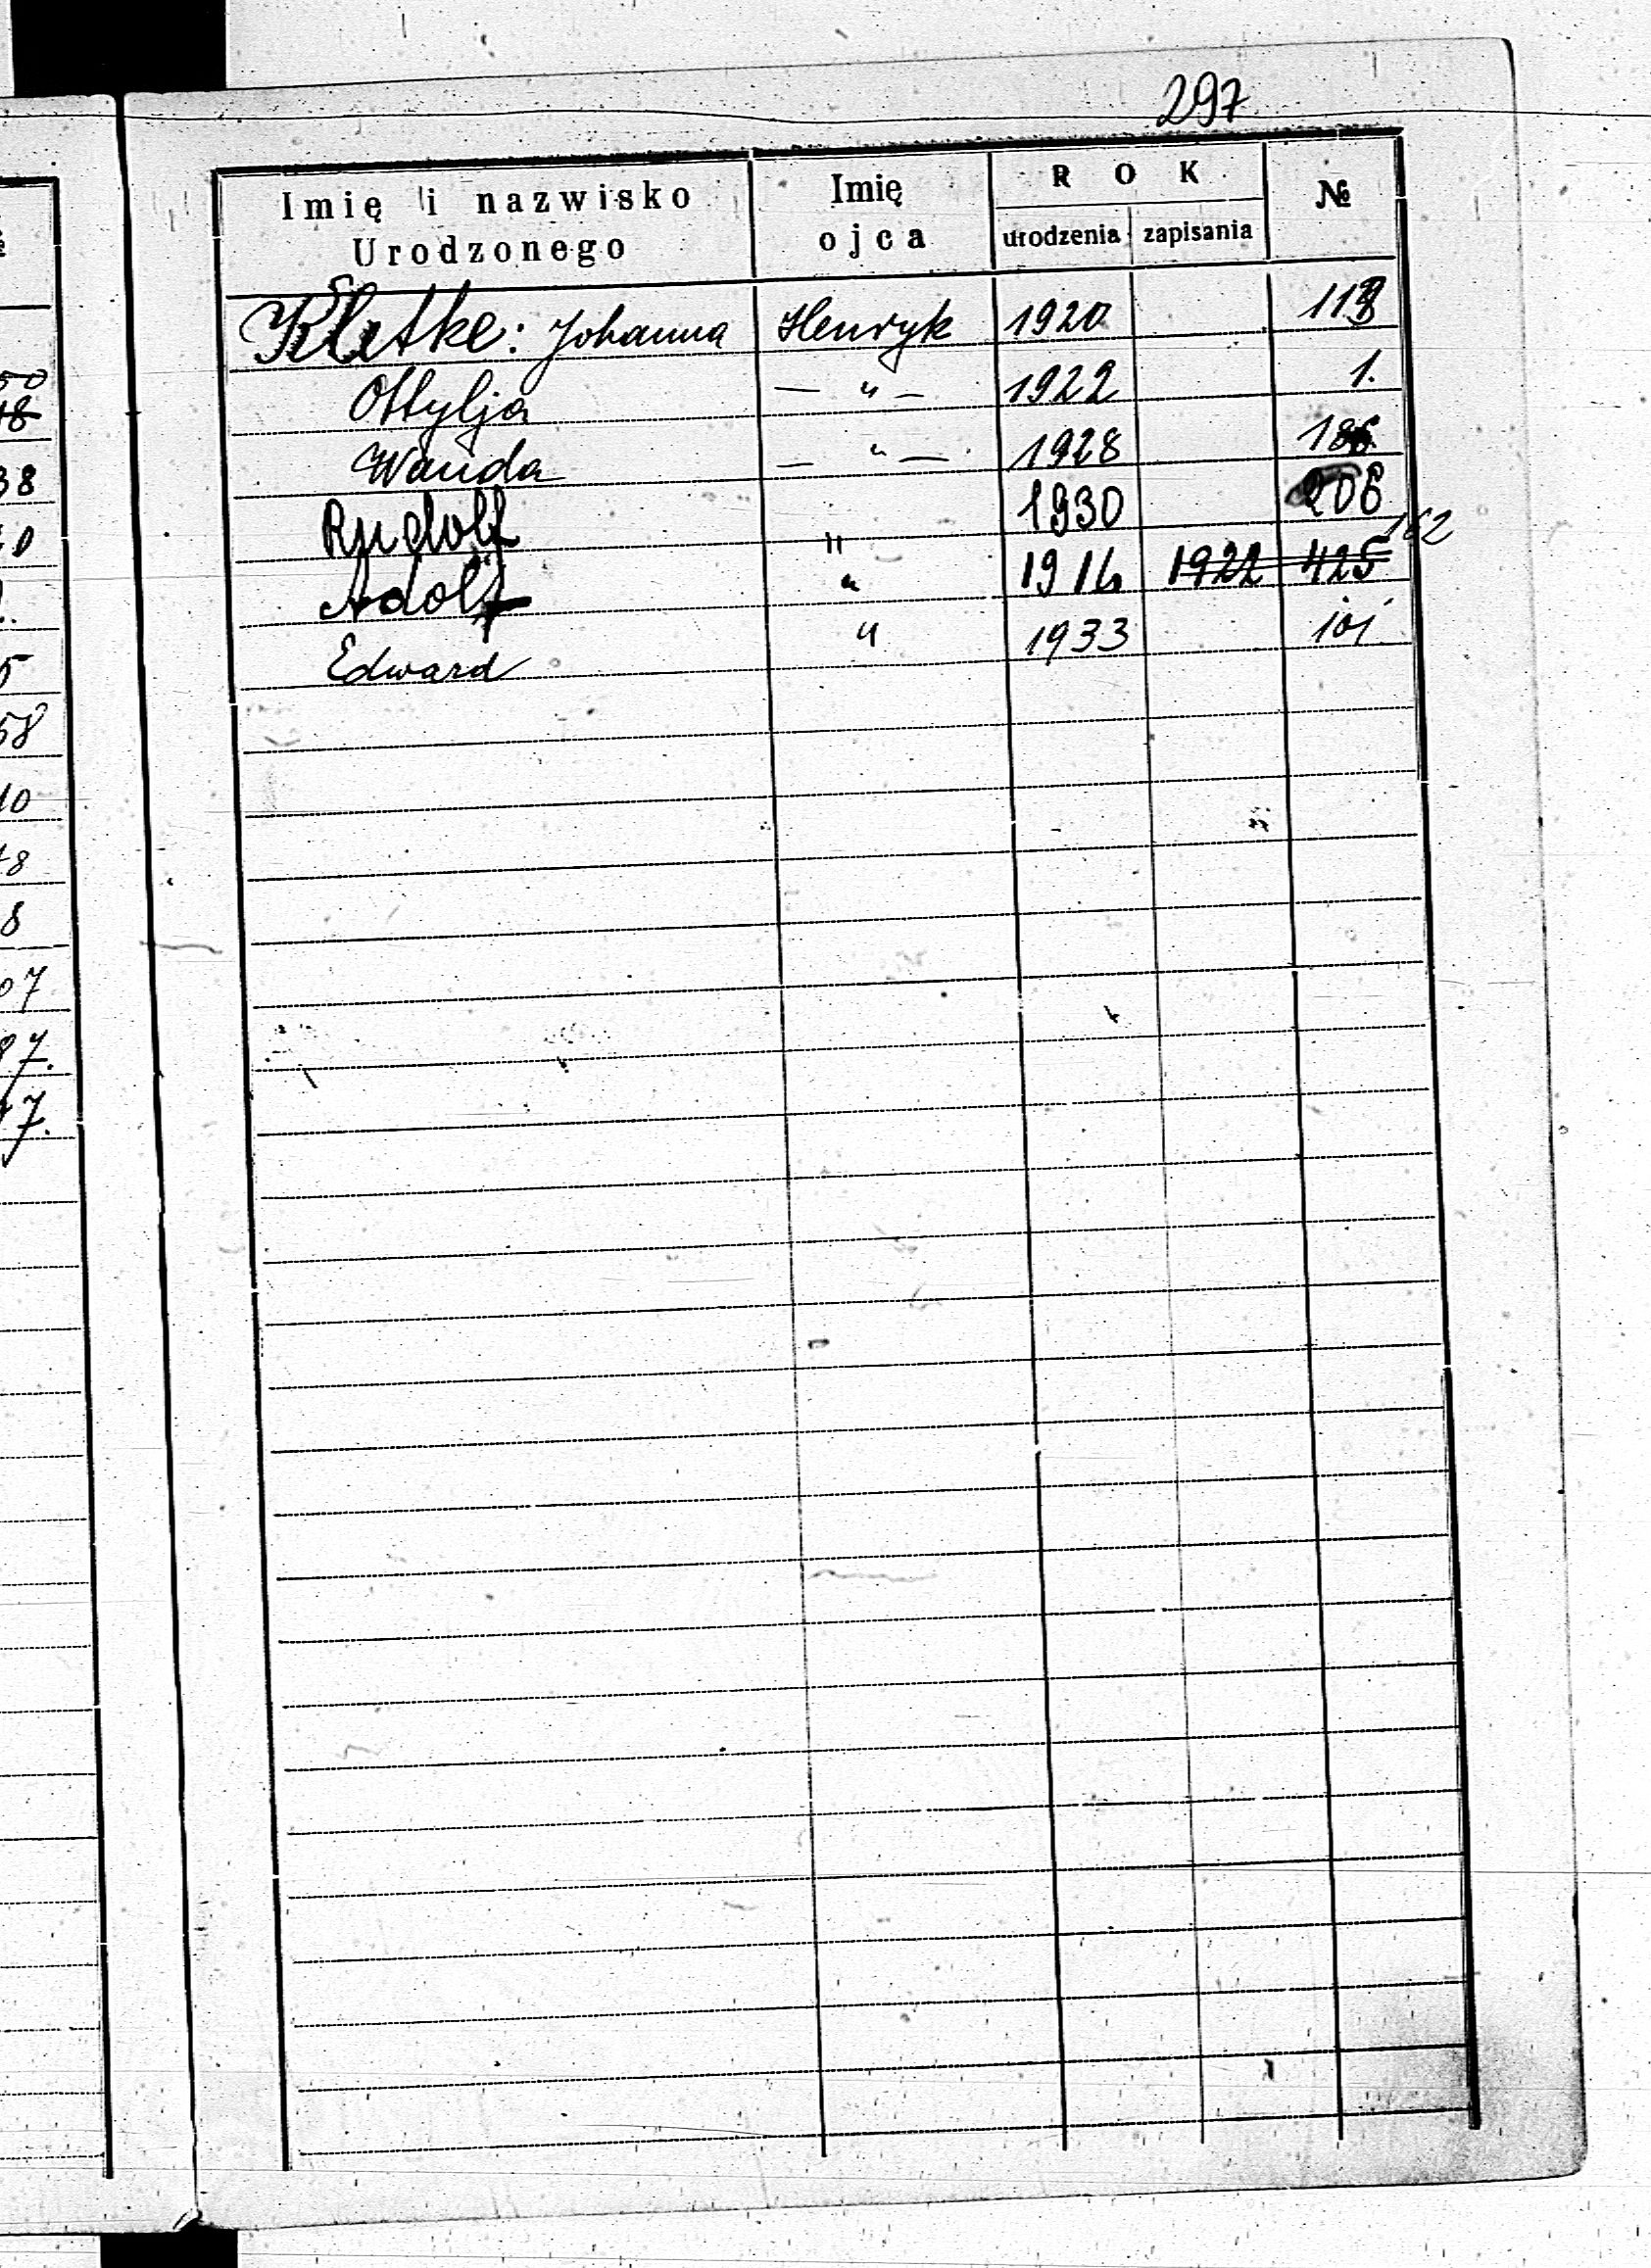 297
Imię i nazwisko Urodzonego Imię ojca ROK urodzenia zapisania №
Kletke: Johanna Henryk 1920
Ottylja — " — 1922 1.
Wanda — " — 1928
Rudolf " 1930 206
Adolf " 1914 1922 425 162
Edward " 1933 101
38
58
10
8
07
87.
7.